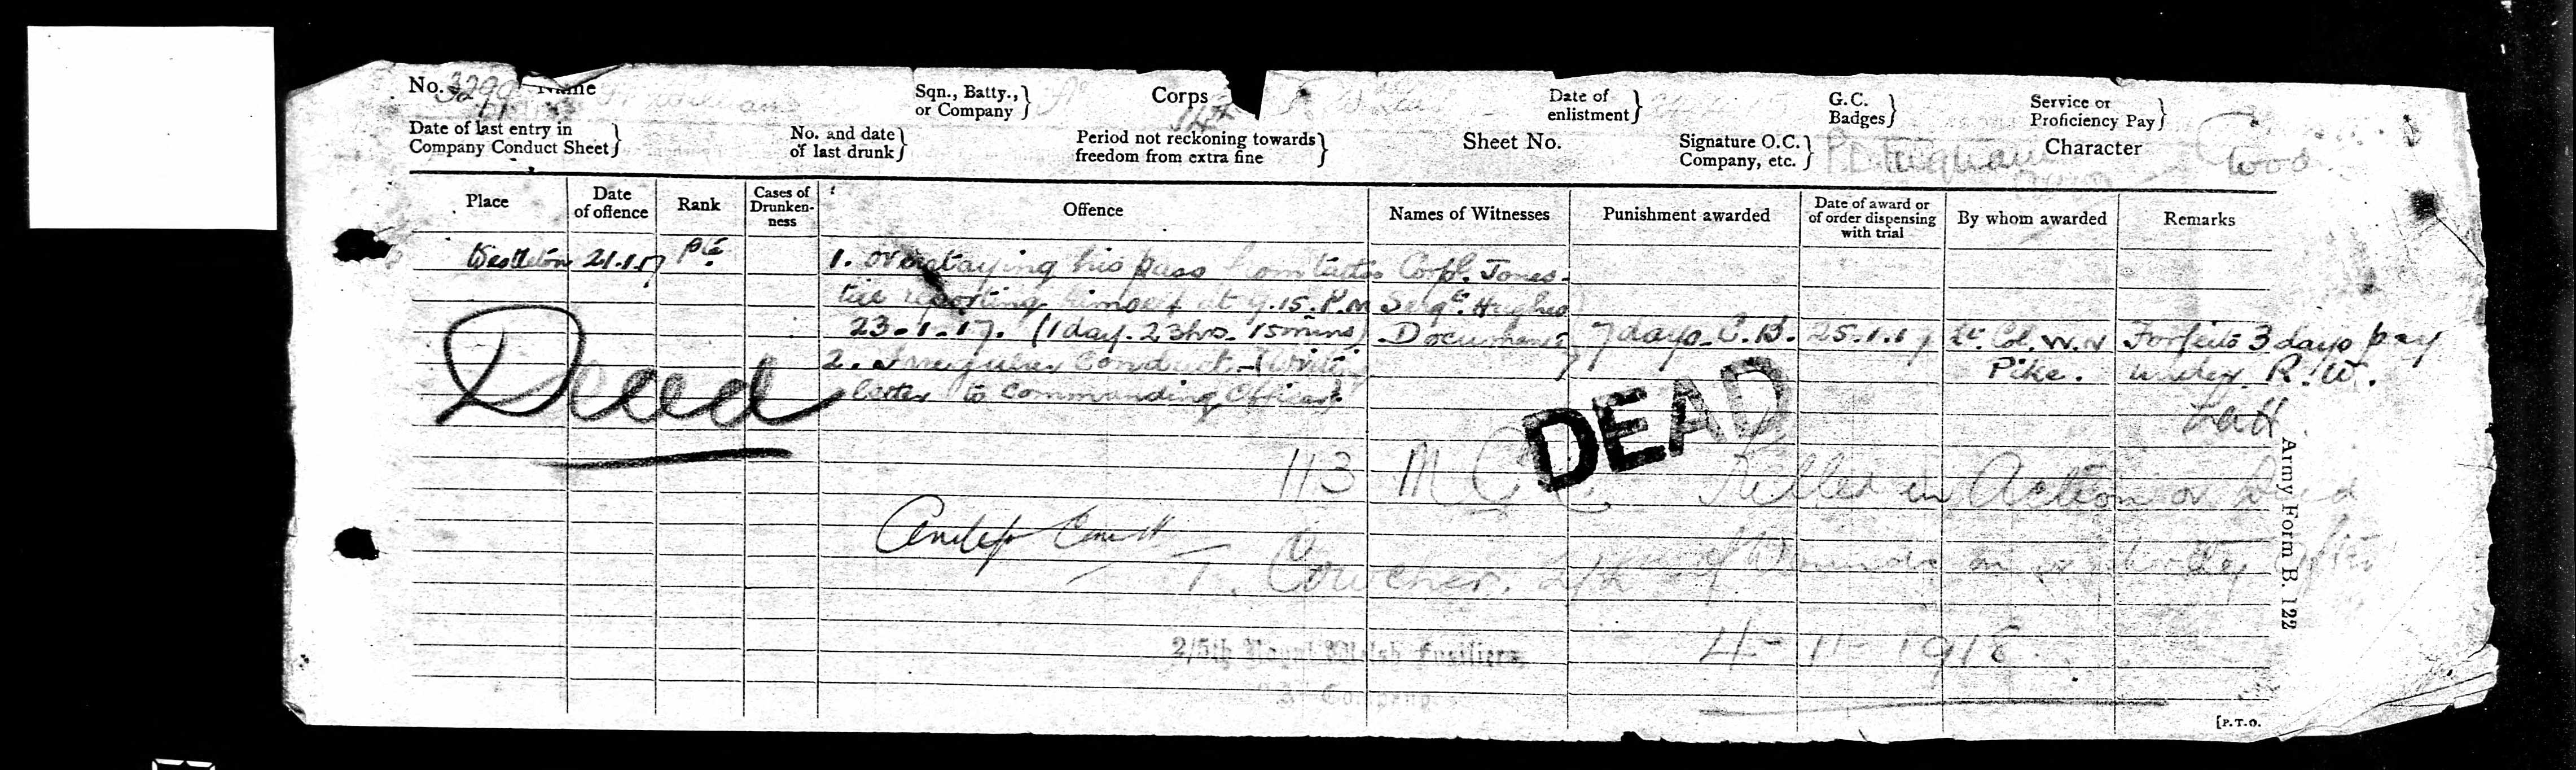 No. 3299 Name Williams
Sqn., Batty., or Company
Corps
Date of enlistment
G.C. Badges
Service or Proficiency Pay
Date of last entry in Company Conduct Sheet
No. and date of last drunk
Period not reckoning towards freedom from extra fine
Sheet No.
Signature O.C. Company, etc.
Character Good
Place
Date of offence
Rank
Cases of Drunken-ness
Offence
Names of Witnesses
Punishment awarded
Date of award or of order dispensing with trial
By whom awarded
Remarks
Westleton 21.1.17 Pte 1. Overstaying his pass from tattoo Corpl. Jones.
till reporting himself at 9.15. P.M Sergt. Hughes
23-1-17. (1 day. 23 hrs. 15 mins) Documents 7 days. C.B. 25.1.17 Lt. Col. W.N Forfeits 3 days pay
2. Irregular Conduct - (Writing Pike. under R.W.
letter to Commanding Officer).
Dead
DEAD
113 M G C Killed in Action or Died
T. Coucher. of Wounds on or shortly after
2/5th Royal Welsh Fusiliers
4-11-1918
Company
Army Form B. 122
[P.T.O.